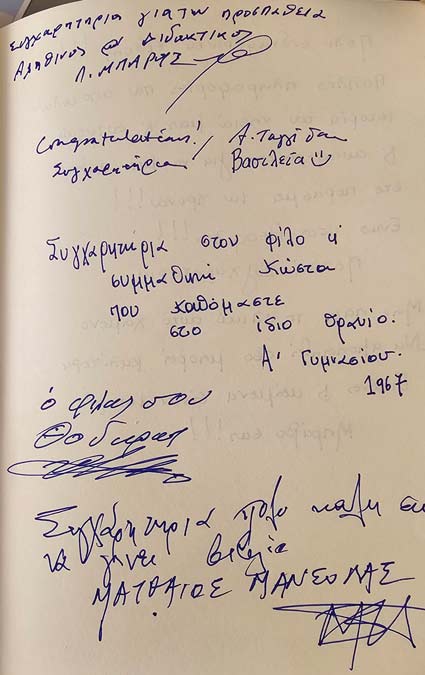 συγχαρητήρια για την προσπάθεια
Αληθινός & Διδακτικός
Π. ΜΠΑΡΜΠ
Congratulations!
Συγχαρητήρια
Α. Ταγγίδαυ
Βασιλεία
Συγχαρητήρια στον φίλο κ'
συμμαθητή Κώστα
που καθόμαστε
στο ίδιο θρανίο.
Α' Γυμνασίου.
1967
ο φίλος σου
Θοδωρας
Συγχαρητήρια πολύ καλή
να γίνει βιβλίο
ΜΑΤΘΑΙΟΣ ΜΑΝΣΟΛΑΣ